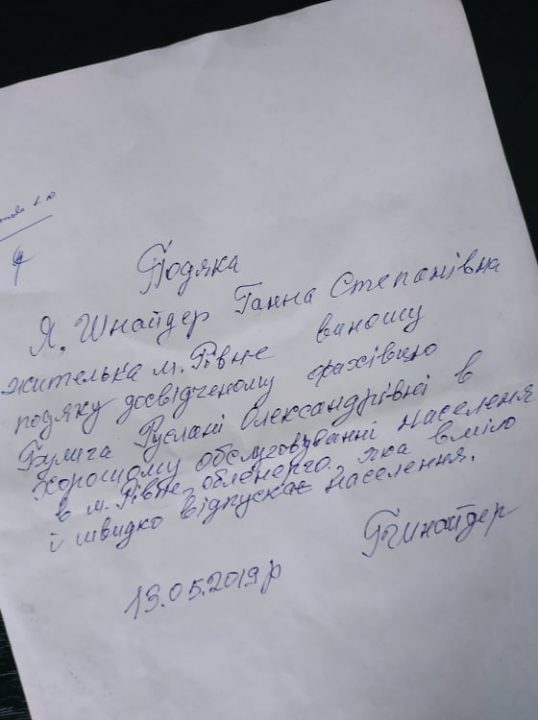 Подяка
Я, Шнайдер Ганна Степанівна
жителька м. Рівне виношу
подяку досвідченому фахівцю
Булига Руслані Олександрівні в
хорошому обслуговуванні населення
в м. Рівне, обленерго, яка вміло
і швидко відпускає населення.
13.05.2019р
ГШнайдер